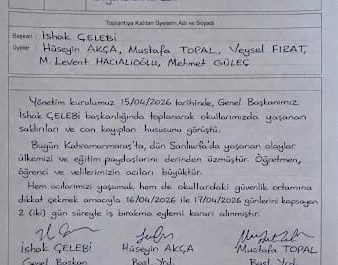 Toplantıya Katılan Üyelerin Adı ve Soyadı
Başkan : İshak ÇELEBİ
Üyeler : Hüseyin AKÇA, Mustafa TOPAL, Veysel FIRAT,
M. Levent HACIALİOĞLU, Mehmet GÜLEÇ
Yönetim kurulumuz 15/04/2026 tarihinde, Genel Başkanımız
İshak ÇELEBİ başkanlığında toplanarak okullarımızda yaşanan
saldırıları ve can kayıpları hususunu görüştü.
Bugün Kahramanmaraş'ta, dün Şanlıurfa'da yaşanan olaylar
ülkemizi ve eğitim paydaşlarını derinden üzmüştür. Öğretmen,
öğrenci ve velilerimizin acıları büyüktür.
Hem acılarımızı yaşamak hem de okullardaki güvenlik ortamına
dikkat çekmek amacıyla 16/04/2026 ile 17/04/2026 günlerini kapsayan
2 (iki) gün süreyle iş bırakma eylemi kararı alınmıştır.
İshak ÇELEBİ Hüseyin AKÇA Mustafa TOPAL
Genel Başkan Başk. Yrd. Başk. Yrd.